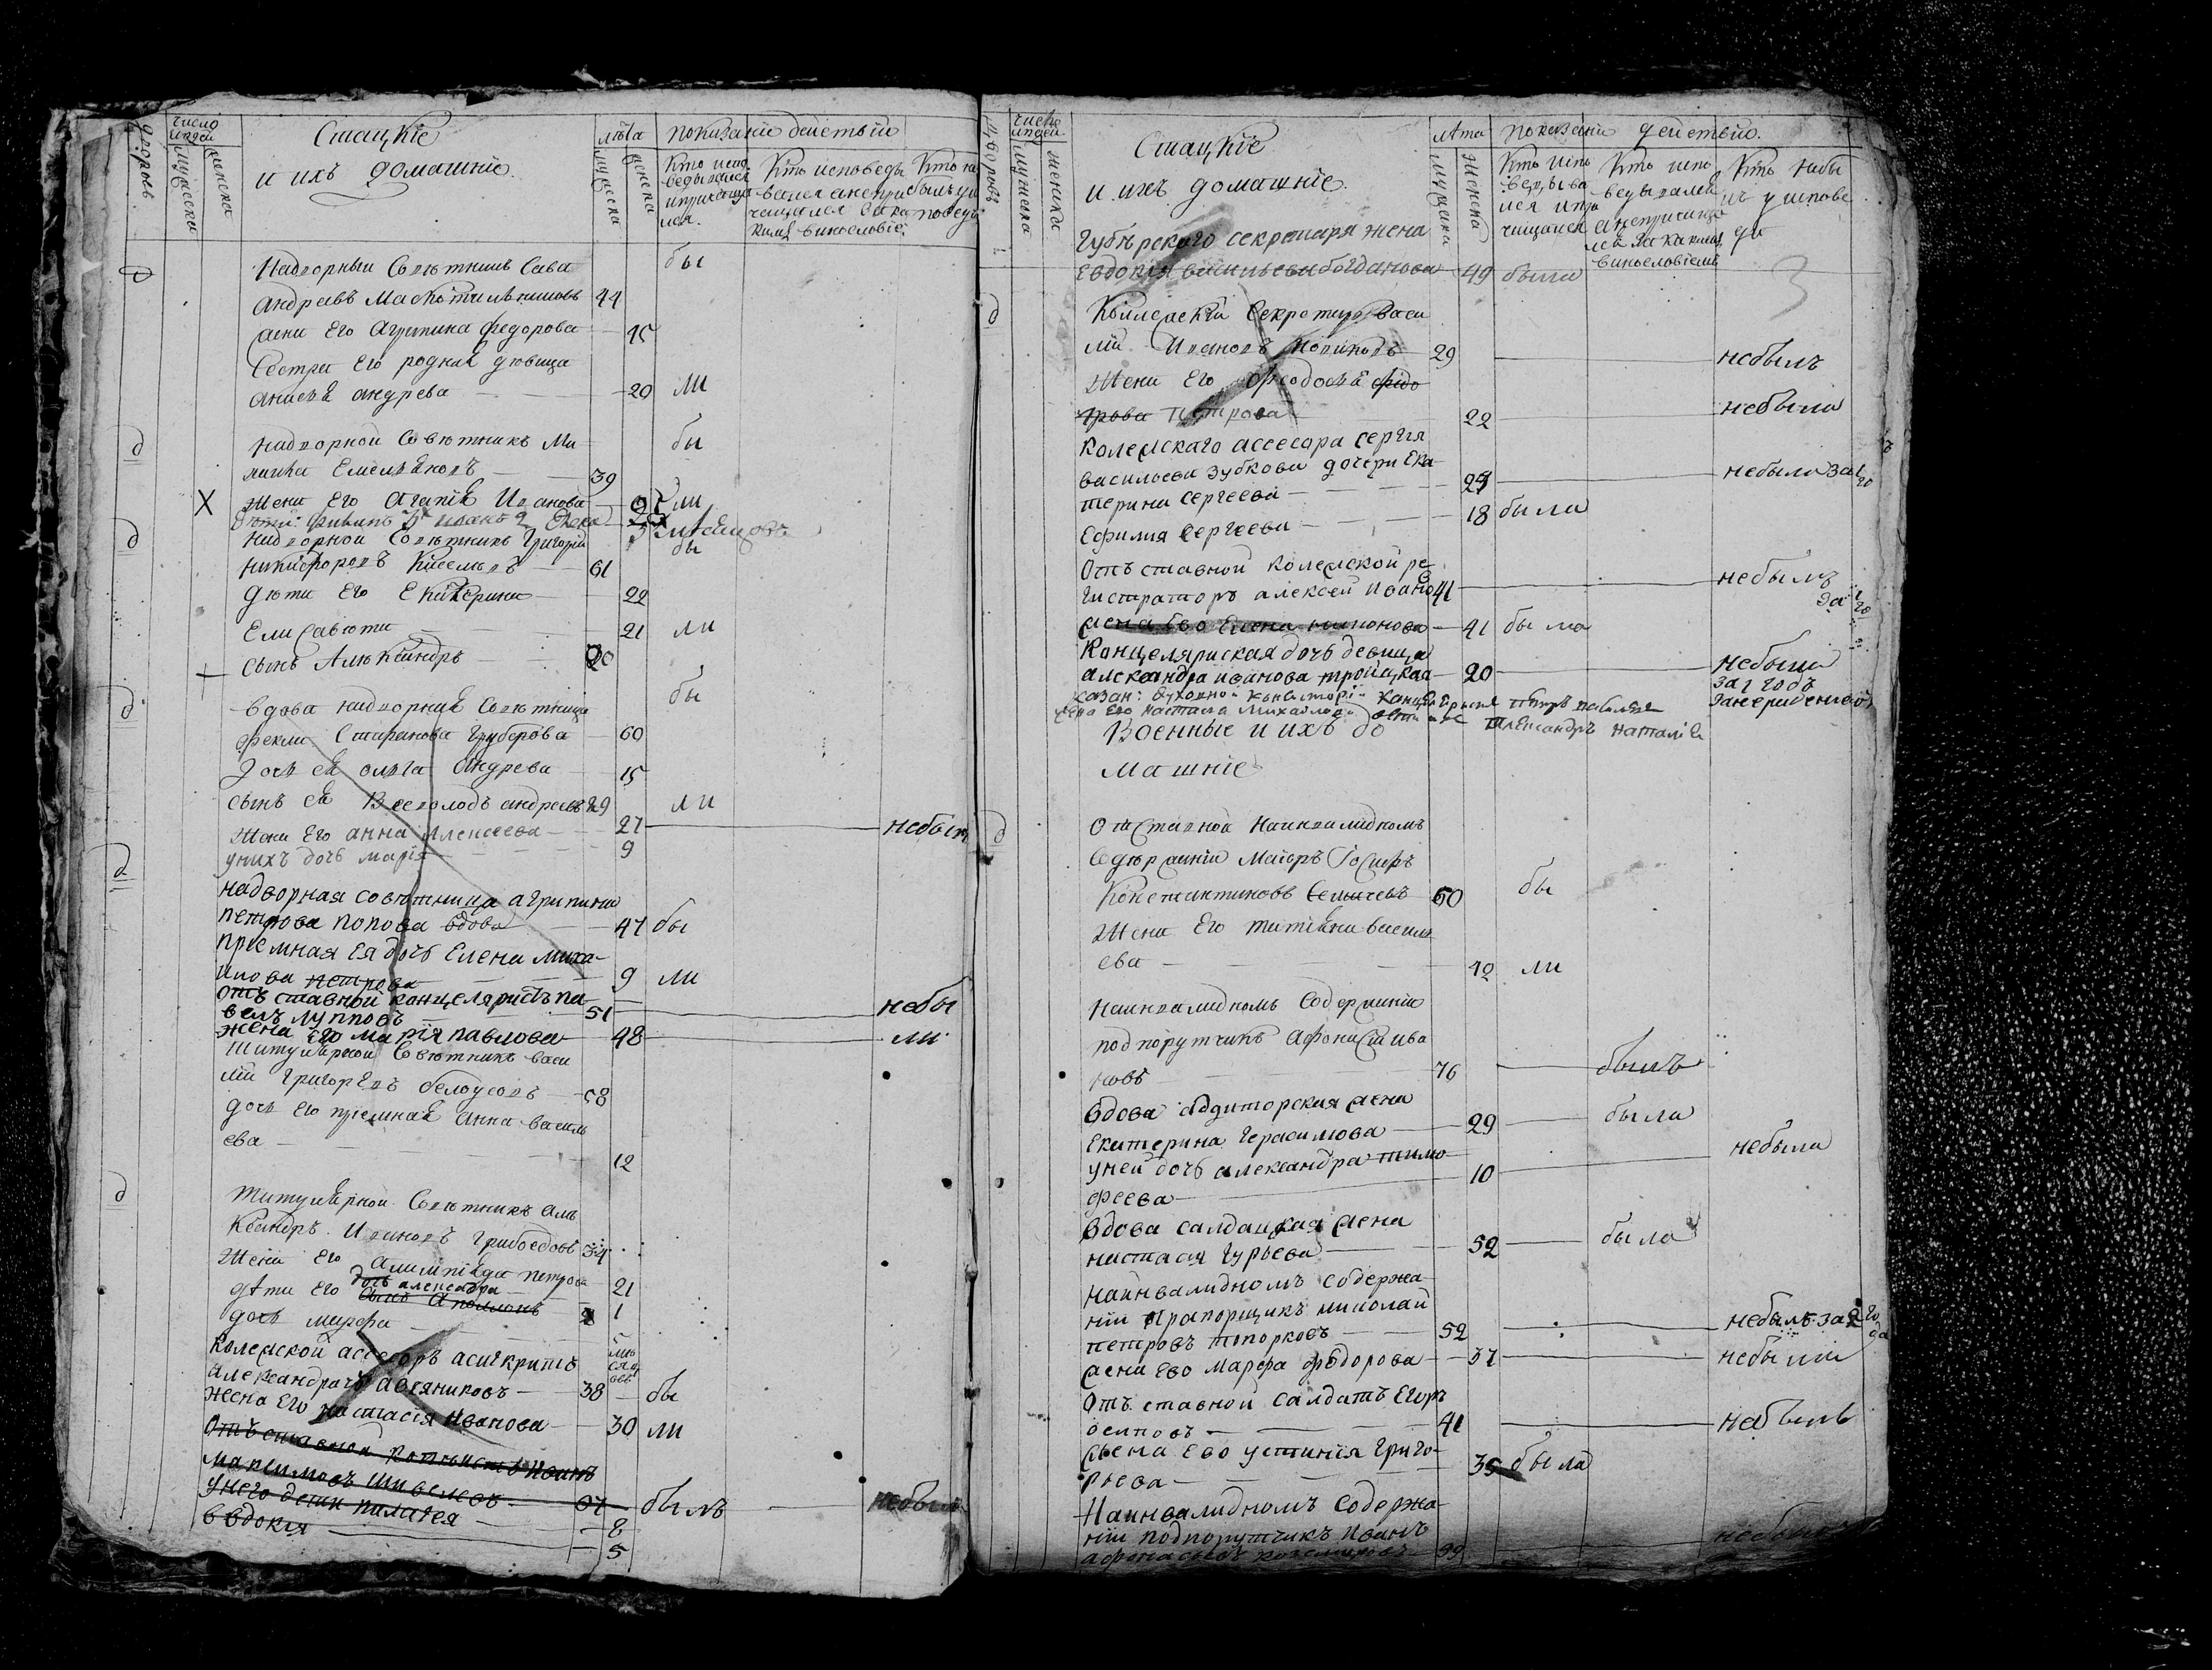 дворовъ
число людей
мужеска
женска
Стацкіе
и ихъ домашніе.
лѣта
мужеска
женска
показаніе действій
Кто испо
ведывался
и причаща
лся.
Кто исповеды
вался а непри
чащался и за ка
кимъ винословіе.
Кто не
былъ у ис
поведи
д
Надворный Советникъ Сава бы
андреевъ 44
жена Его Агрипина федорова 45
Сестра Его родная девица
анисья андрева 20 ли
д
надворной Советникъ Ми бы
хайла Емельяновъ 39
X
жена Его Агапія Иванова ли
д
надворной Советникъ Григорій бы
никифоровъ Киселевъ 61
дети Его Екатерина 22
Елисавета 21 ли
сынъ Александръ 20
д
вдова надворная Советница бы
фекла Стафанова 60
дочь ея ольга Андрева 15
сынъ ея Всеволодъ андреевъ 29 ли
жена Его анна Алексеева 27 небыла
унихъ дочь марія 9
д
надворная советница агрипина
петрова попова вдова 47 бы
приемная Ея дочь Елена миха-
илова петрова 9 ли
отъ ставной канцеляристъ па-
велъ лупповъ 51 небы
жена Его марія павлова 48 ли
титулярной Советникъ васи
лій Григорьевъ белоусовъ 58
дочь Его приемная Анна василь
ева 12
д
титулярной Советникъ Алe
ксандръ Ивановъ Грибоедовъ 34
жена Его Алимпіяда петрова 21
дочь александра
дети Его сынъ Аполлонъ 1
дочь марфа
Колежской ассесоръ асигкритъ
александровъ овсяниковъ 38 бы
жена Его настасія Иванова 30 ли
отъ ставной копіистъ Иванъ
максимовъ 67 былъ небылъ
у него дети палагея 8
Евдокия 5
дворовъ
число людей
мужеска
женска
Стацкіе
и ихъ домашніе.
лѣта
мужеска
женска
показаніе действій.
Кто испо
ведыва
лся и при
чащался
Кто испо
ведывалсй
а непричаща
лся за какимъ
винословіемъ
Кто небы
лъ у испове
ди
Губерского секретаря жена
Евдокія васильева богданова 49 была
3
д
Колежскій Секретарь Васи
лій Ивановъ новиковъ 29 небылъ
жена Его феодосья федо
трова петрова 22 небыла
колежскаго ассесора сергея
васильева зубкова дочери Ека-
терина сергеева 23 небыла за 1 го
Есфилия сергеева 18 была
отъ ставной колежской ре
гистраторъ алексей ивано 41 небылъ за
жена Ево Елена 41 была
канцелярская дочь девица
александра иванова троицкая 20 небыла
за 1 годъ
занерадением
казан: духовной
жена Его настасья михайлова александръ наталія
Военные и ихъ до
машніе
д
отставной на инвалидномъ
содержаніи Маіоръ Іосифъ
Константиновъ 50 бы
жена Его татіяна василь
ева 42 ли
на инвалидномъ содержаніи
подпорутчикъ Афонасій ива
новъ 76 былъ
вдова аудиторская жена
Екатерина Герасимова 29 была
у ней дочь александра тимо-
феева 10 небыла
вдова салдацкая жена
настасія Гурьева 52 была
на инвалидномъ содержа-
ніи прапорщикъ николай
петровъ топорковъ 52 небылъ за 2 го
да
жена Ево Марфа федорова 37 небыла
отъ ставной салдатъ Егоръ
осиповъ 41 небылъ
жена Ево устинія Григо-
рьева 35 была
на инвалидномъ содержа-
ніи подпорутчикъ Иванъ
афонасьевъ 39 небылъ